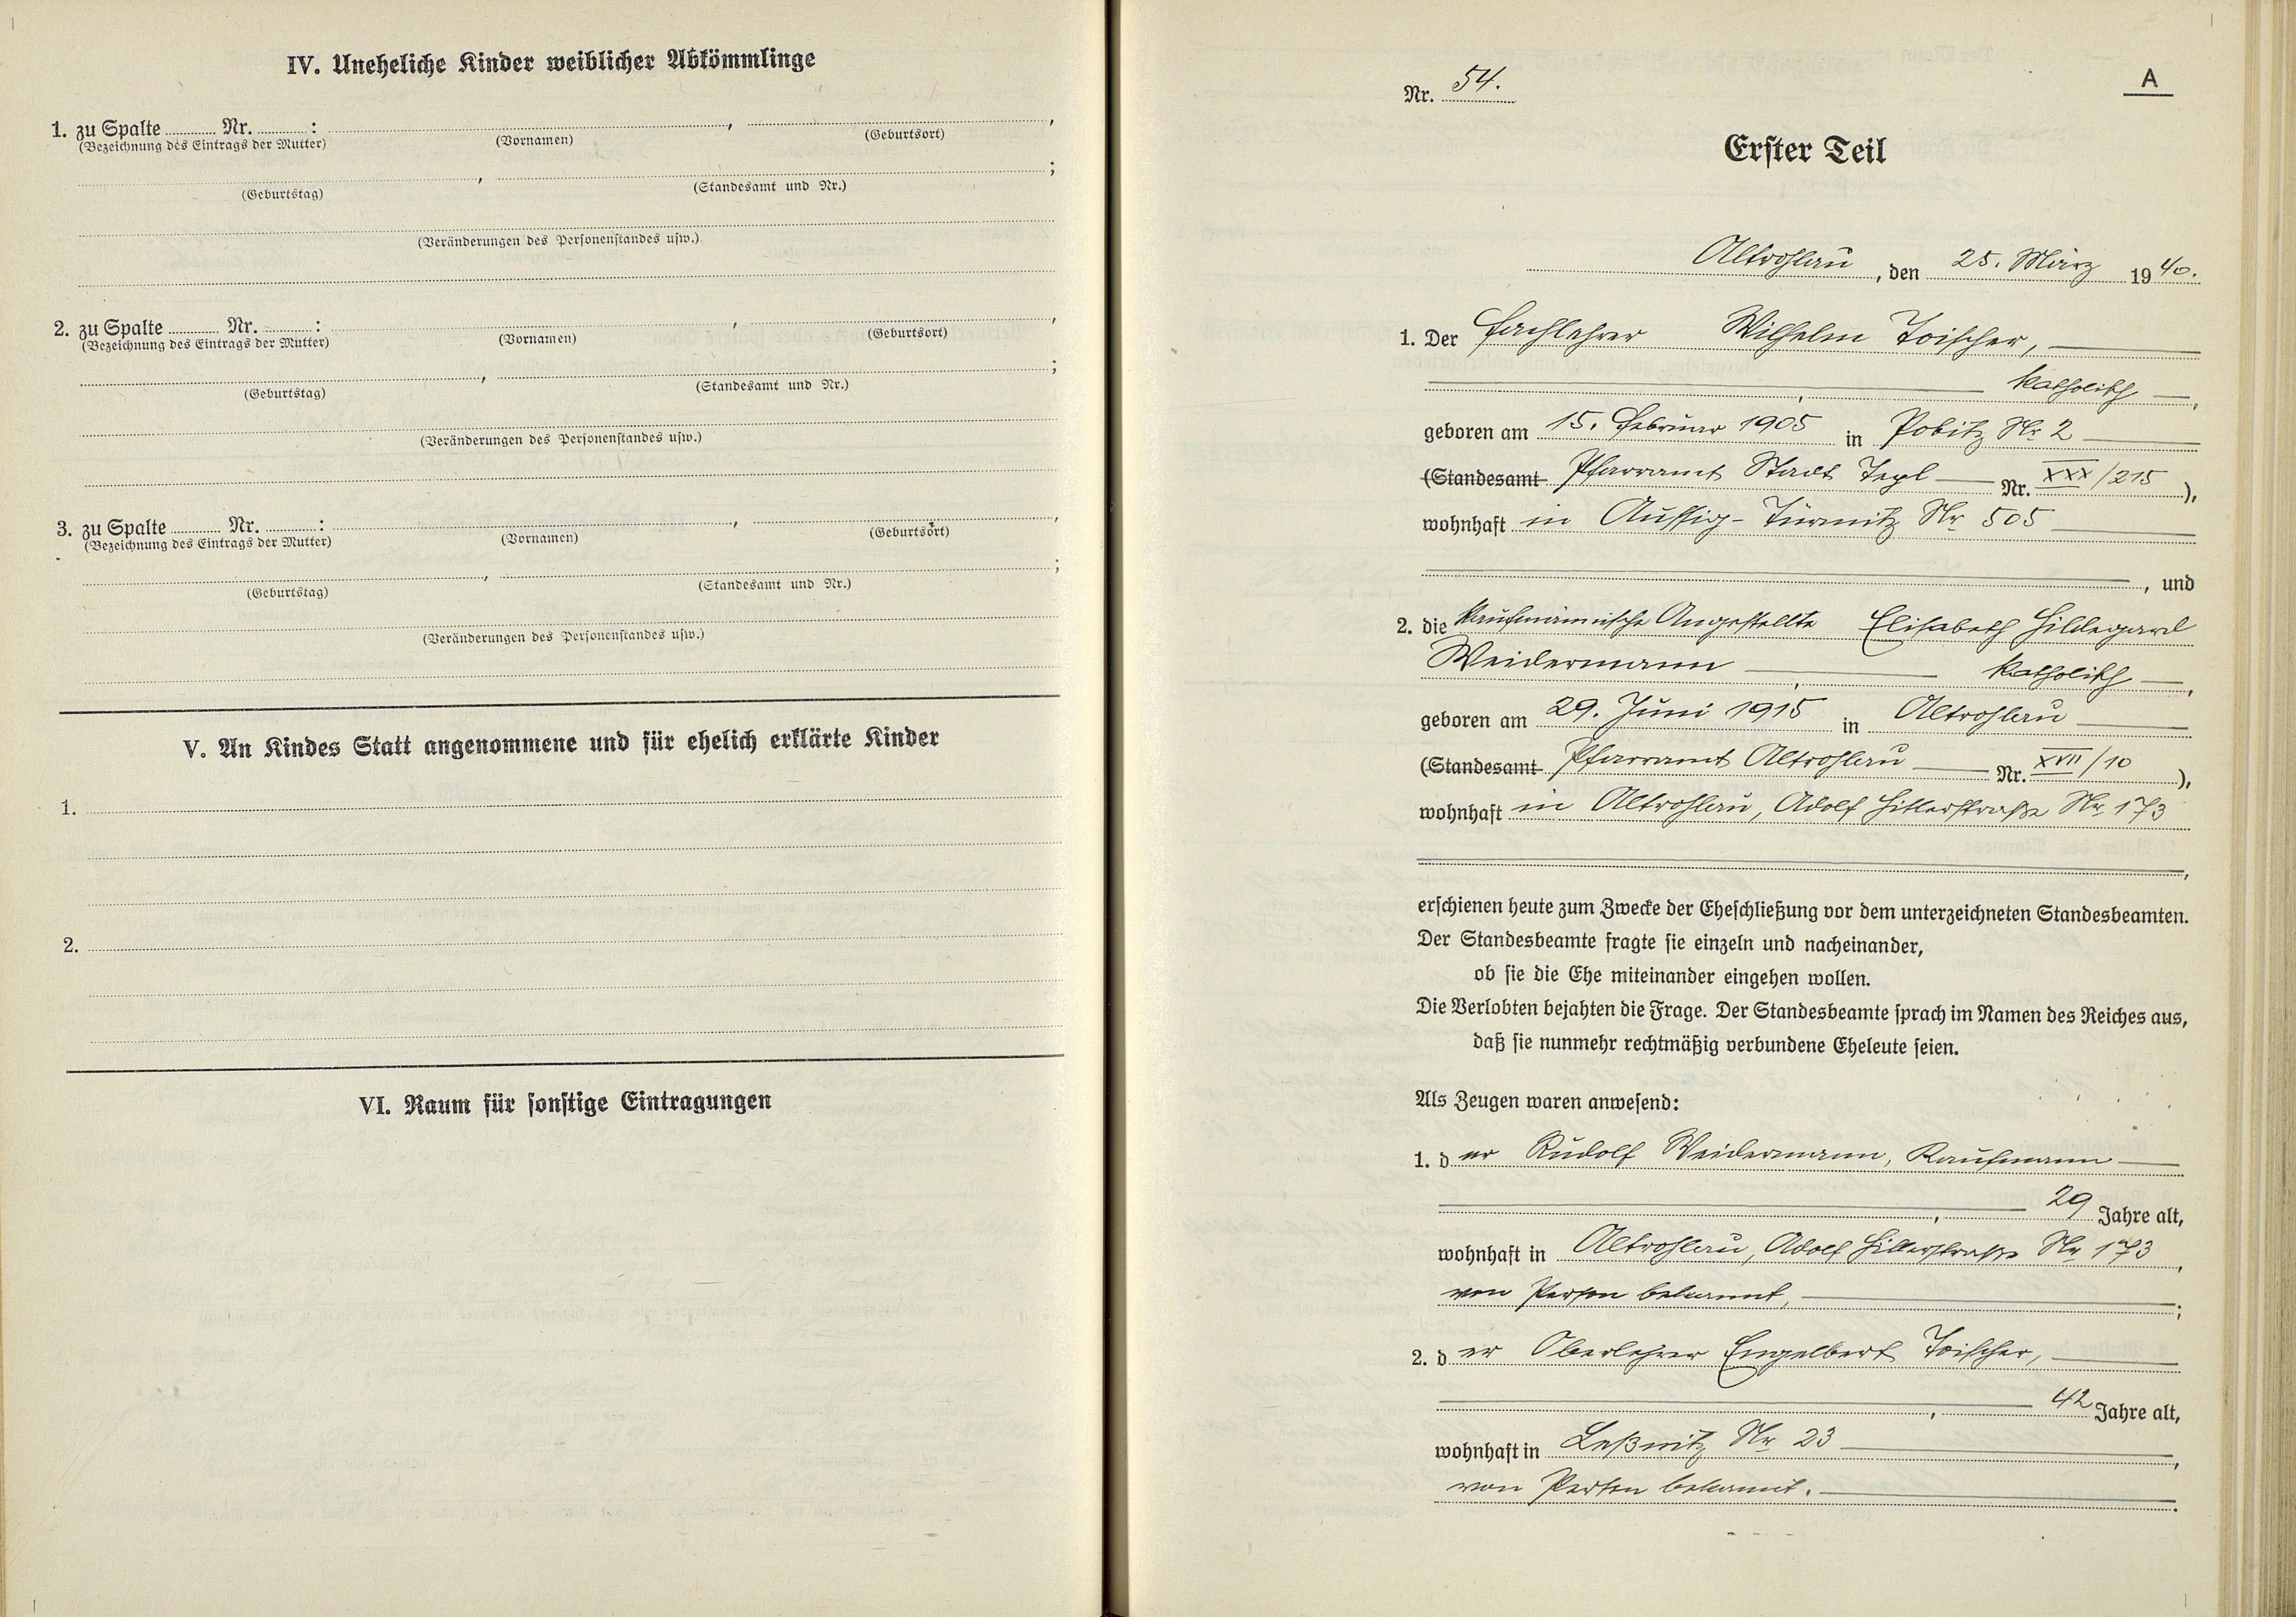 IV. Uneheliche Kinder weiblicher Abkömmlinge
1. zu Spalte ........ Nr. ........ : , ,
(Bezeichnung des Eintrags der Mutter) (Vornamen) (Geburtsort)
, ;
(Geburtstag) (Standesamt und Nr.)
(Veränderungen des Personenstandes usw.)
2. zu Spalte ........ Nr. ........ : , ,
(Bezeichnung des Eintrags der Mutter) (Vornamen) (Geburtsort)
, ;
(Geburtstag) (Standesamt und Nr.)
(Veränderungen des Personenstandes usw.)
3. zu Spalte ........ Nr. ........ : , ,
(Bezeichnung des Eintrags der Mutter) (Vornamen) (Geburtsort)
, ;
(Geburtstag) (Standesamt und Nr.)
(Veränderungen des Personenstandes usw.)
V. An Kindes Statt angenommene und für ehelich erklärte Kinder
1.
2.
VI. Raum für sonstige Eintragungen
Nr. 54.
A
Erster Teil
Altrohlau, den 25. März 1940.
1. Der Fachlehrer Wilhelm Toischer,
, katholisch,
geboren am 15. Februar 1905 in Pobitz Nr 2
(Standesamt Pfarramt Stadt Tepl Nr. XXX/215),
wohnhaft in Aussig-Türmitz Nr 505
, und
2. die kaufmännische Angestellte Elisabeth Hildegard
Weidermann, katholisch,
geboren am 29. Juni 1915 in Altrohlau
(Standesamt Pfarramt Altrohlau Nr. XVII/10),
wohnhaft in Altrohlau, Adolf Hitlerstraße Nr 173
,
erschienen heute zum Zwecke der Eheschließung vor dem unterzeichneten Standesbeamten.
Der Standesbeamte fragte sie einzeln und nacheinander,
ob sie die Ehe miteinander eingehen wollen.
Die Verlobten bejahten die Frage. Der Standesbeamte sprach im Namen des Reiches aus,
daß sie nunmehr rechtmäßig verbundene Eheleute seien.
Als Zeugen waren anwesend:
1. der Rudolf Weidermann, Kaufmann
, 29 Jahre alt,
wohnhaft in Altrohlau, Adolf Hitlerstraße Nr 173,
von Person bekannt, ;
2. der Oberlehrer Engelbert Toischer,
, 42 Jahre alt,
wohnhaft in Leßnitz Nr 23,
von Person bekannt.